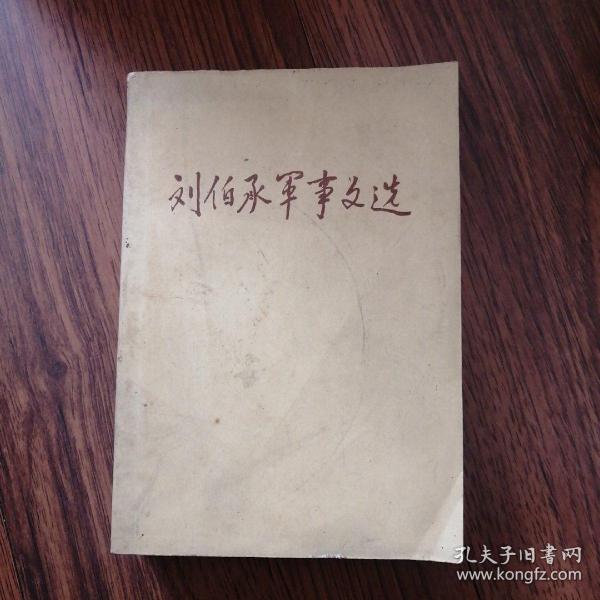 刘伯承軍事文选
孔夫子旧書网
www.kongfz.com